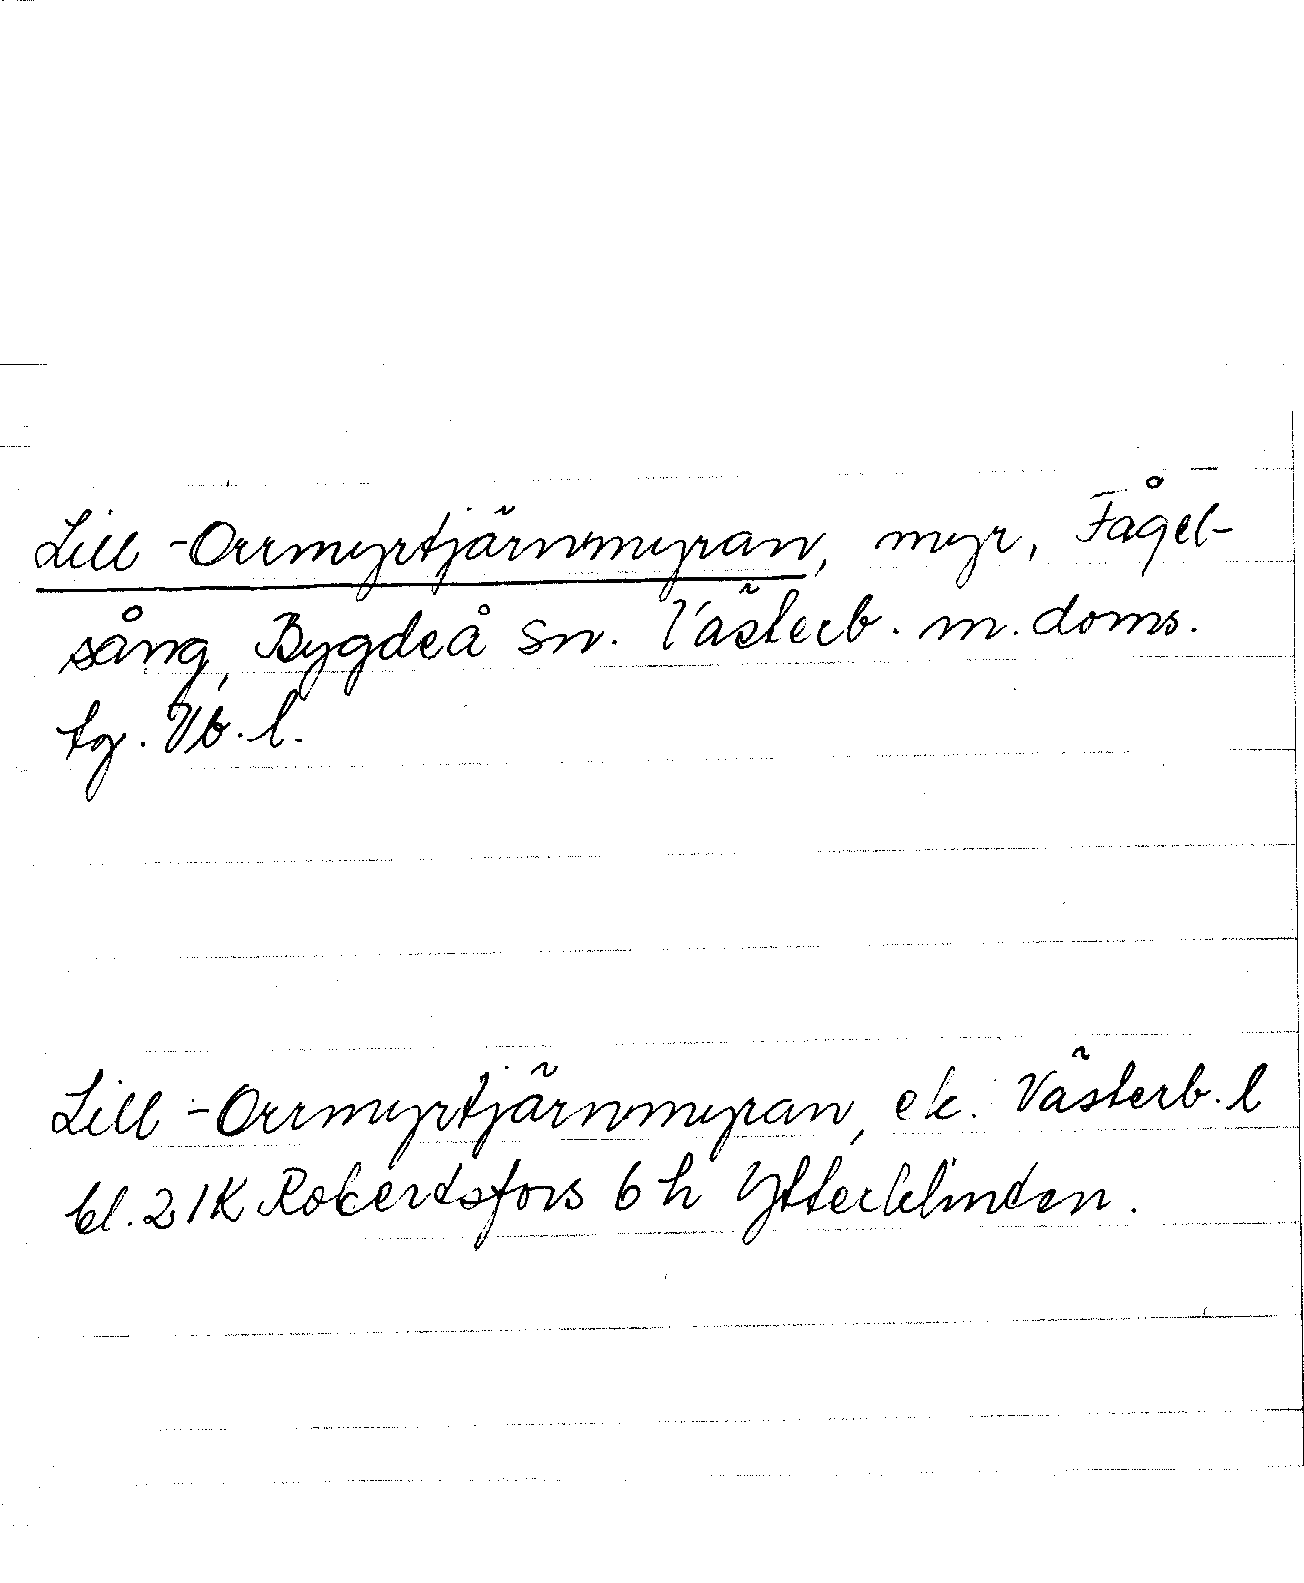 Lill-Orrmyrtjärnmyran, myr, Fågel-
sång, Bygdeå sn. Västerb. m. doms.
tg. Vb. l.
Lill-Orrmyrtjärnmyran, ek. Västerb. l
bl. 21K Robertsfors 6 h Ytterklinten.